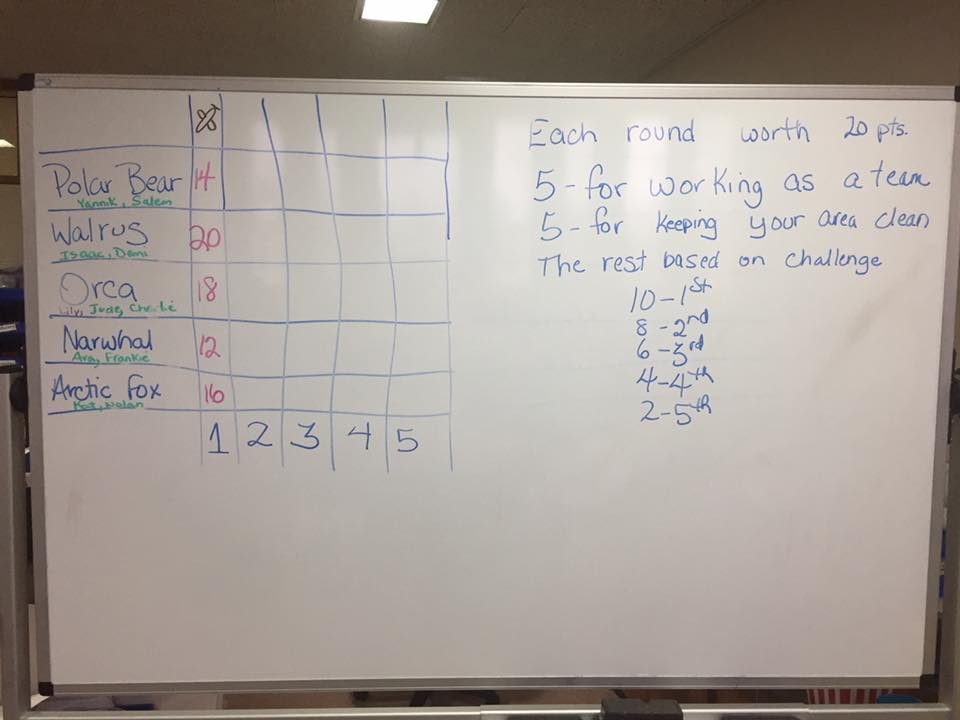 Polar Bear 14
Yannik, Salem
Walrus 20
Isaac, Demi
Orca 18
Lily, Jude, Charlie
Narwhal 12
Ara, Frankie
Arctic Fox 16
Kat, Nolan
1 2 3 4 5
Each round worth 20 pts.
5 - for working as a team
5 - for keeping your area clean
The rest based on challenge
10 - 1st
8 - 2nd
6 - 3rd
4 - 4th
2 - 5th